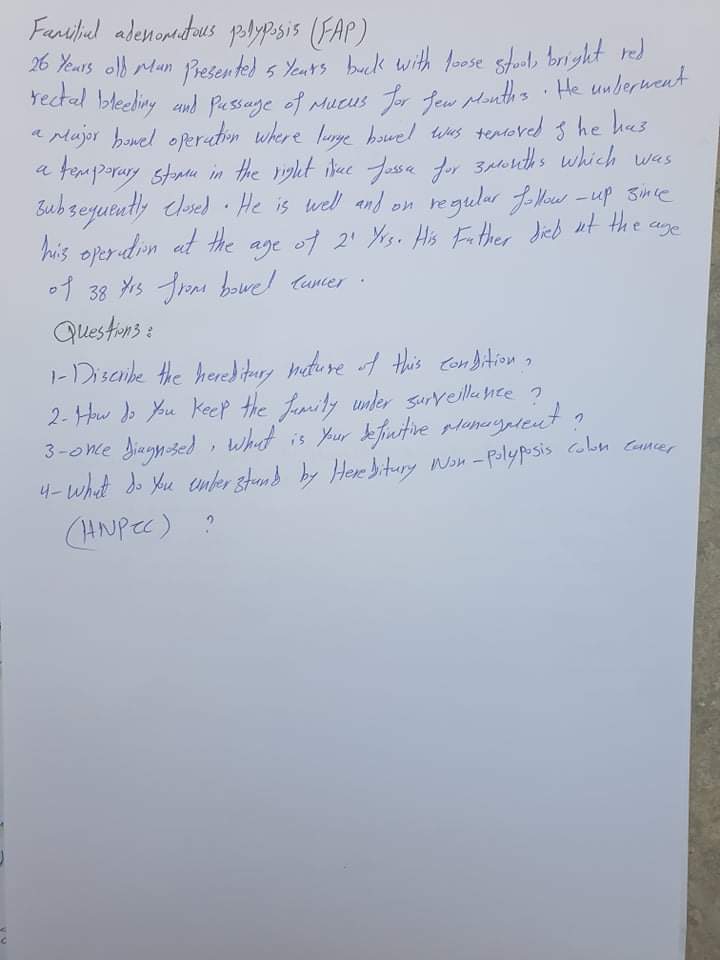 Familial adenomatous polyposis (FAP)
26 Years old Man Presented 5 Years back with loose stool, bright red
rectal bleeding and Passage of Mucus for few Months. He underwent
a Major bowel operation where large bowel was removed & he has
a temporary stoma in the right iliac fossa for 3 Months which was
subsequently closed. He is well and on regular follow-up since
his operation at the age of 21 Yrs. His Father died at the age
of 38 Yrs from bowel cancer.
Questions:
1- Discribe the hereditary nature of this condition?
2- How do You Keep the family under surveillance?
3- once diagnosed, what is Your definitive Managment?
4- What do You understand by Hereditary Non-Polyposis colon cancer
(HNPCC) ?